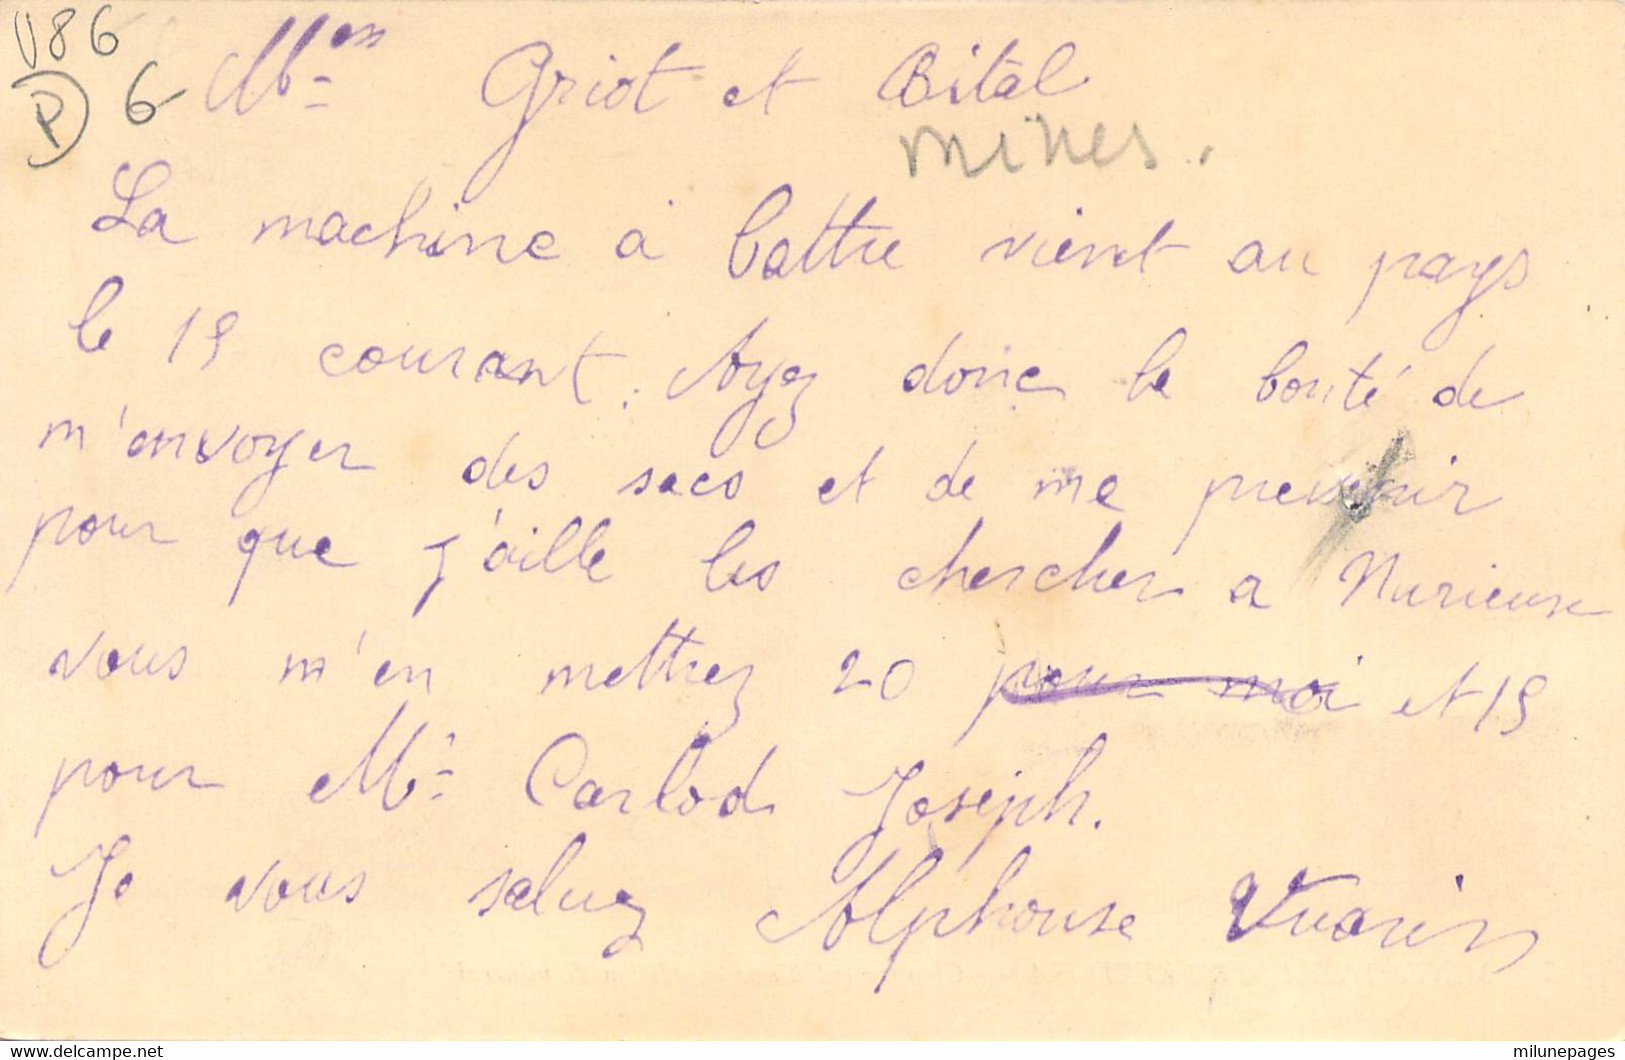 V86
P 6
Mrs Griot et Bital
mines.
La machine à battre vient au pays
le 19 courant. Ayez donc la bonté de
m'envoyer des sacs et de me prevenir
pour que j'aille les chercher a Nurieux
vous m'en mettrez 20 pour moi et 15
pour Mr Carlod Joseph.
Je vous saluez Alphonse Vuarin
www.delcampe.net
milunepages